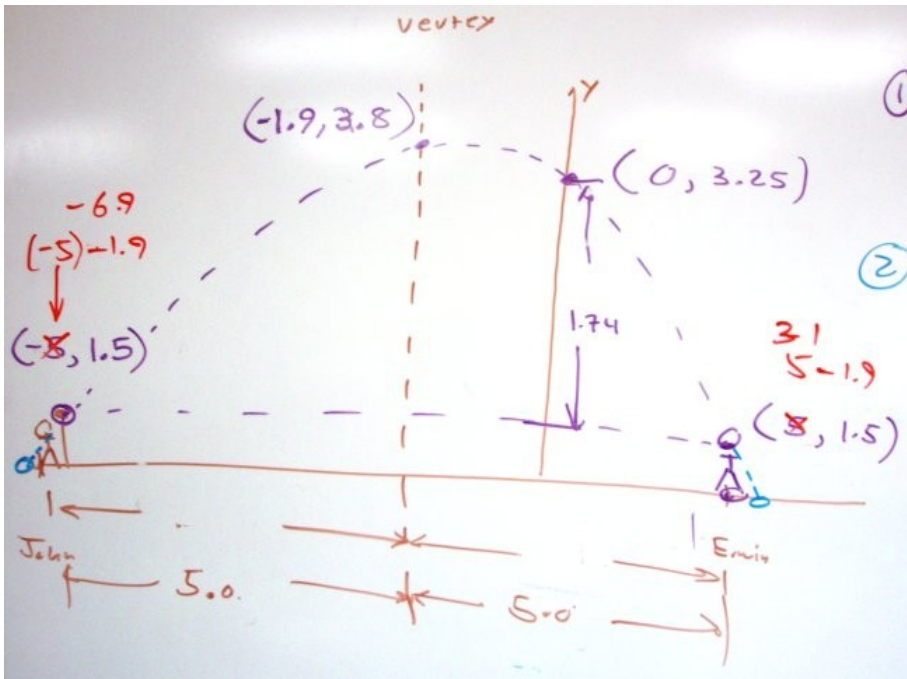 vertex
Y
①
(-1.9, 3.8)
(0, 3.25)
-6.9
(-5)-1.9
②
1.74
(-5, 1.5)
3.1
5-1.9
(5, 1.5)
John
Erwin
5.0
5.0